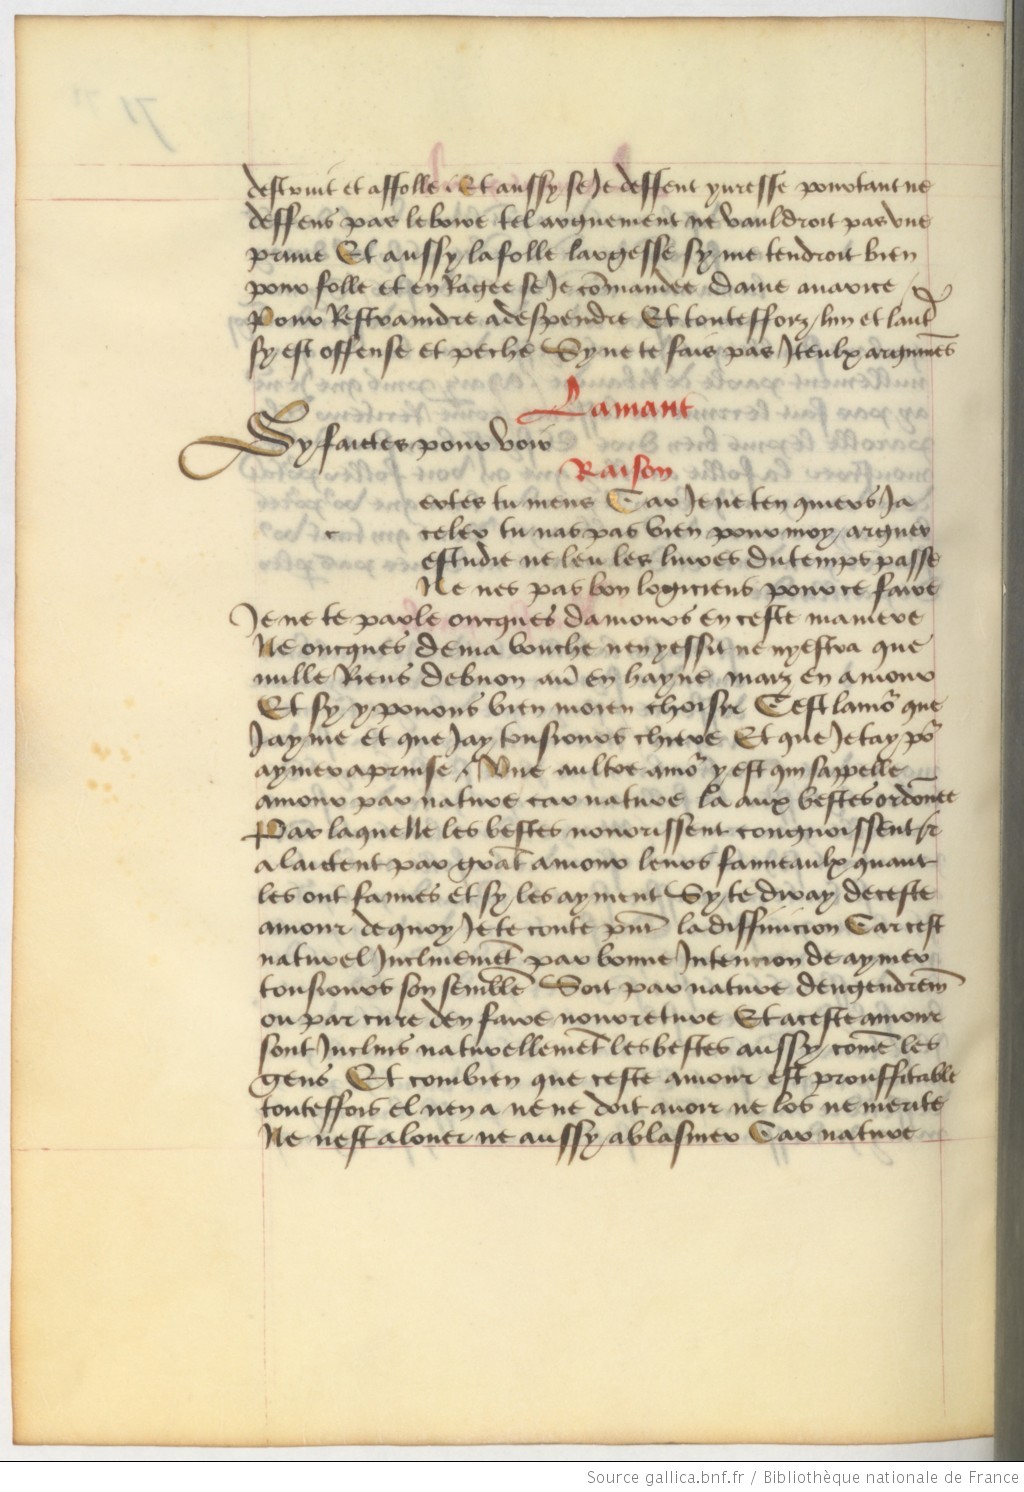 destruit et affolle Et aussy se Je deffent yuresse pourtant ne
deffens pas le boire tel arguement ne vauldroit pas vne
prune Et aussy la folle largesse sy me tendroit bien
pour folle et en Ragee se Je cōmandee dame auarice
Pour Restraindre a despendre Et toutefforz lun et laut̄
sy est offense et peche Sy ne te fais pas Jteulx argum̄es
Lamant
Sy faictes pour voir
Raison
ertes tu mens Car Je ne ten quiers Ja
c celer tu nas pas bien pour moy arguer
estudie ne leu les liures du temps passe
Ne nes pas bon logiciens pour ce faire
Je ne te parle oncques damours en ceste maniere
Ne oncques de ma bouche nen yessit ne nyestra que
nulle Riens en hayne marz en amour
Et sy y pouons bien moien choisir Cest lamor que
Jayme et que Jay tousiours chiere Et que Je tay por
aymer aprinse Vne aultre amor y est qui sappelle
amour par nature car nature la aux bestes ordōnee
Par laquelle les bestes nourissent congnoissent
alaictent par grāt amour leurs fanneaulx quant
les ont fannes et sy les ayment Sy te diray de ceste
amour de quoy Je te conte la diffinicion Car cest
naturel Jnclinemēt par bonne Jntencion de aymer
tousiours son semblē Soit par nature dengendrem̄
ou par cure den faire nourreture Et a ceste amour
sont Jnclins naturellemēt les bestes aussy com̄e les
gens Et combien que ceste amour est prouffitable
touteffois el nen a ne ne doit auoir ne los ne merite
Ne nest a louer ne aussy a blasmer Car nature
Source gallica.bnf.fr / Bibliothèque nationale de France